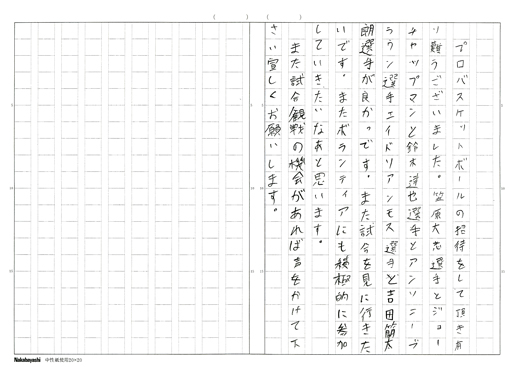 プロバスケットボールの招待をして頂き有
り難うございました。笠原太志選手とジョー
チャップマンと鈴木達也選手とアンソニーブ
ラウン選手エイドリアンモス選手と吉田簡太
朗選手が良かっです。また試合を見に行きた
いです。またボランティアにも積極的に参加
していきたいなあと思います。
また試合観戦の機会があれば声をかけて下
さい宜しくお願いします。
Nakabayashi 中性紙使用20×20